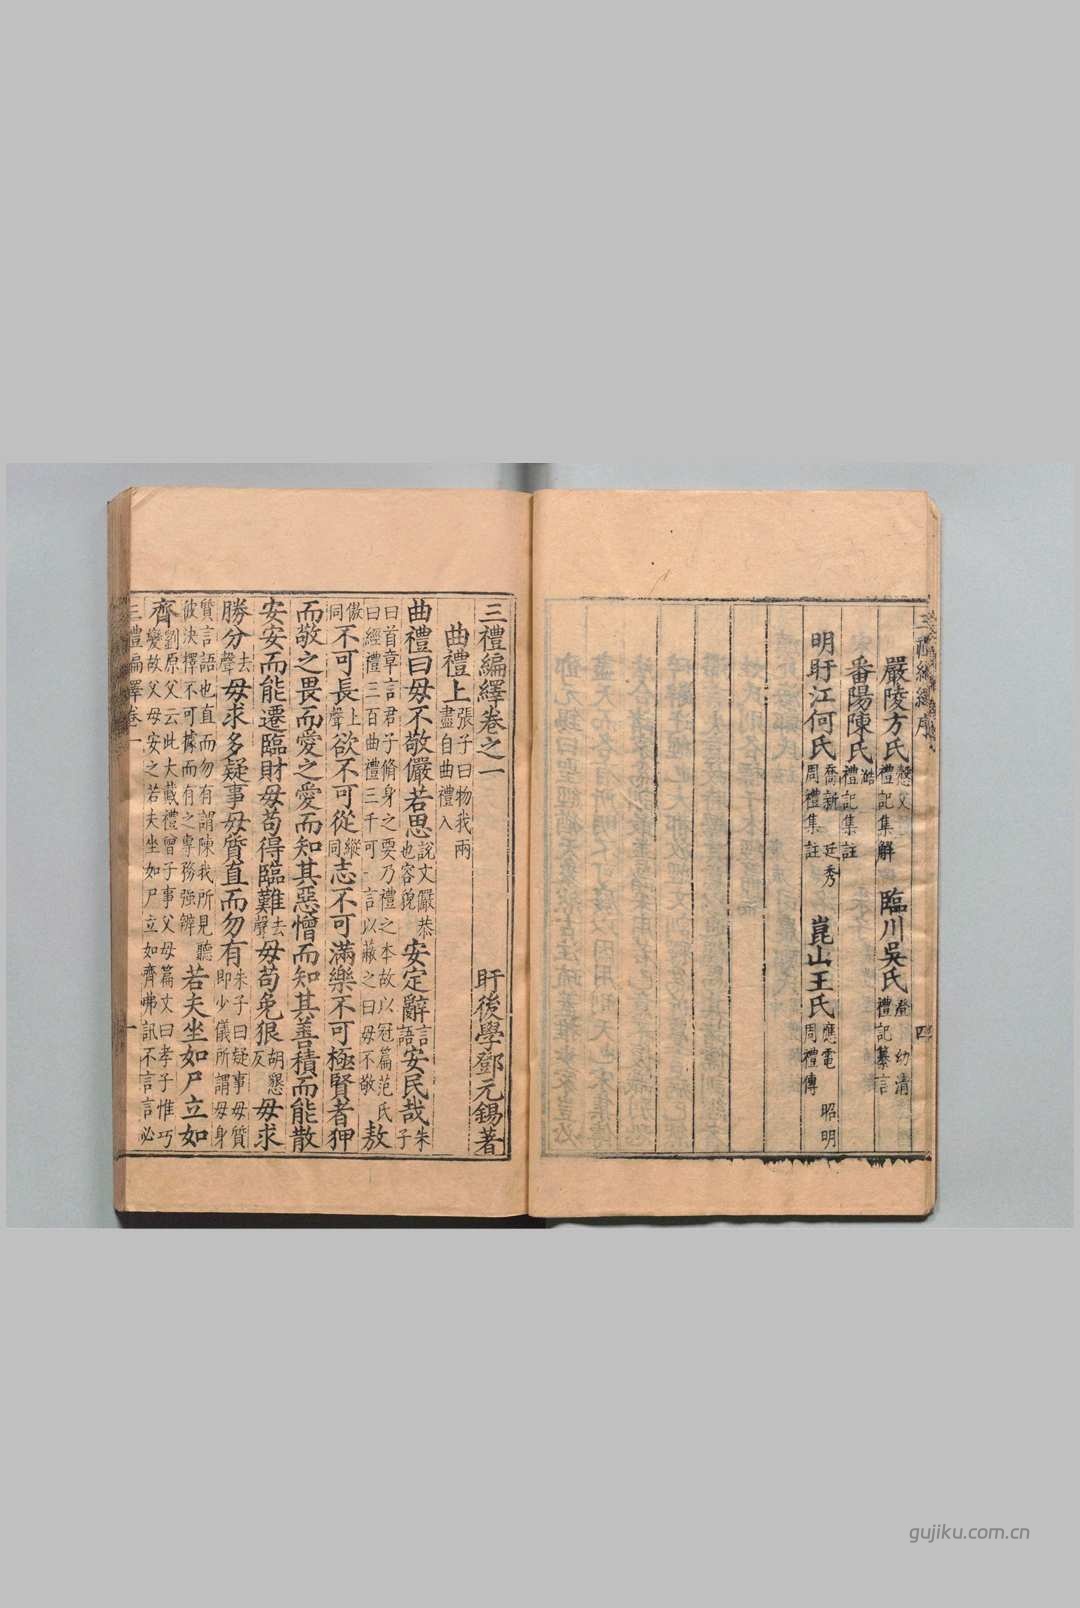 嚴陵方氏 愨 禮記集解 臨川吳氏 幼清 禮記纂言
番陽陳氏 澔 禮記集註
明盱江何氏 喬新 廷秀 周禮集註 崑山王氏 應電 昭明 周禮傳
四
三禮編繹卷之一 盱後學鄧元錫著
曲禮上 張子曰物我兩盡自曲禮入
曲禮曰毋不敬儼若思 說文儼恭也容貌 安定辭 言語 安民哉 朱子
曰首章言君子脩身之要乃禮之本故以冠篇范氏曰經禮三百曲禮三千可一言以蔽之曰毋不敬 敖
傲同 不可長 上聲 欲不可從 縱同 志不可滿樂不可極賢者狎
而敬之畏而愛之愛而知其惡憎而知其善積而能散
安安而能遷臨財毋苟得臨難 去聲 毋苟免狠 胡懇反 毋求
勝分 去聲 毋求多疑事毋質直而勿有 朱子曰疑事毋質即少儀所謂毋身
質言語也直而勿有謂陳我所見聽彼決擇不可據而有之專務强辨 若夫坐如尸立如
齊 劉原父云此大戴禮曾子事父母篇文曰孝子惟巧變故父母安之若夫坐如尸立如齊弗訊不言言必
三禮編繹卷一 一
gujiku.com.cn